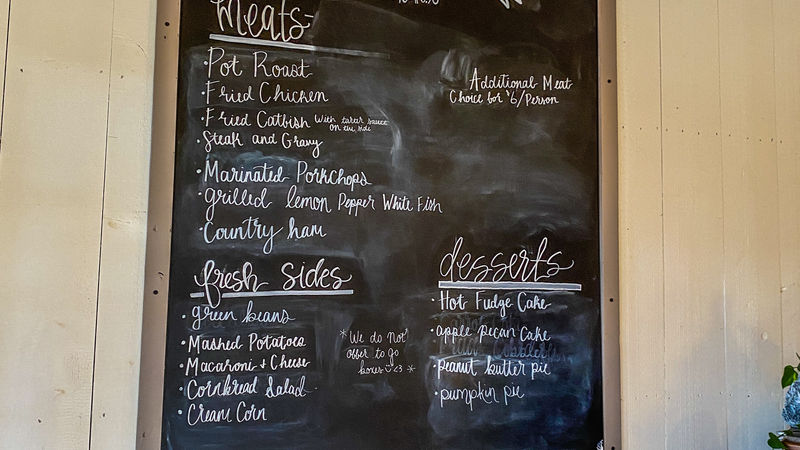 Meats
• Pot Roast
• Fried Chicken
• Fried Catfish With tartar sauce
on the side
• Steak and Gravy
• Marinated Porkchops
• grilled lemon Pepper White Fish
• Country ham
Additional Meat
Choice for $6/Person
fresh sides
• green beans
• Mashed Potatoes
• Macaroni + Cheese
• Cornbread Salad
• Cream Corn
* We do not
offer to go
boxes <3 *
desserts
• Hot Fudge Cake
• apple pecan Cake
• peanut butter pie
• pumpkin pie